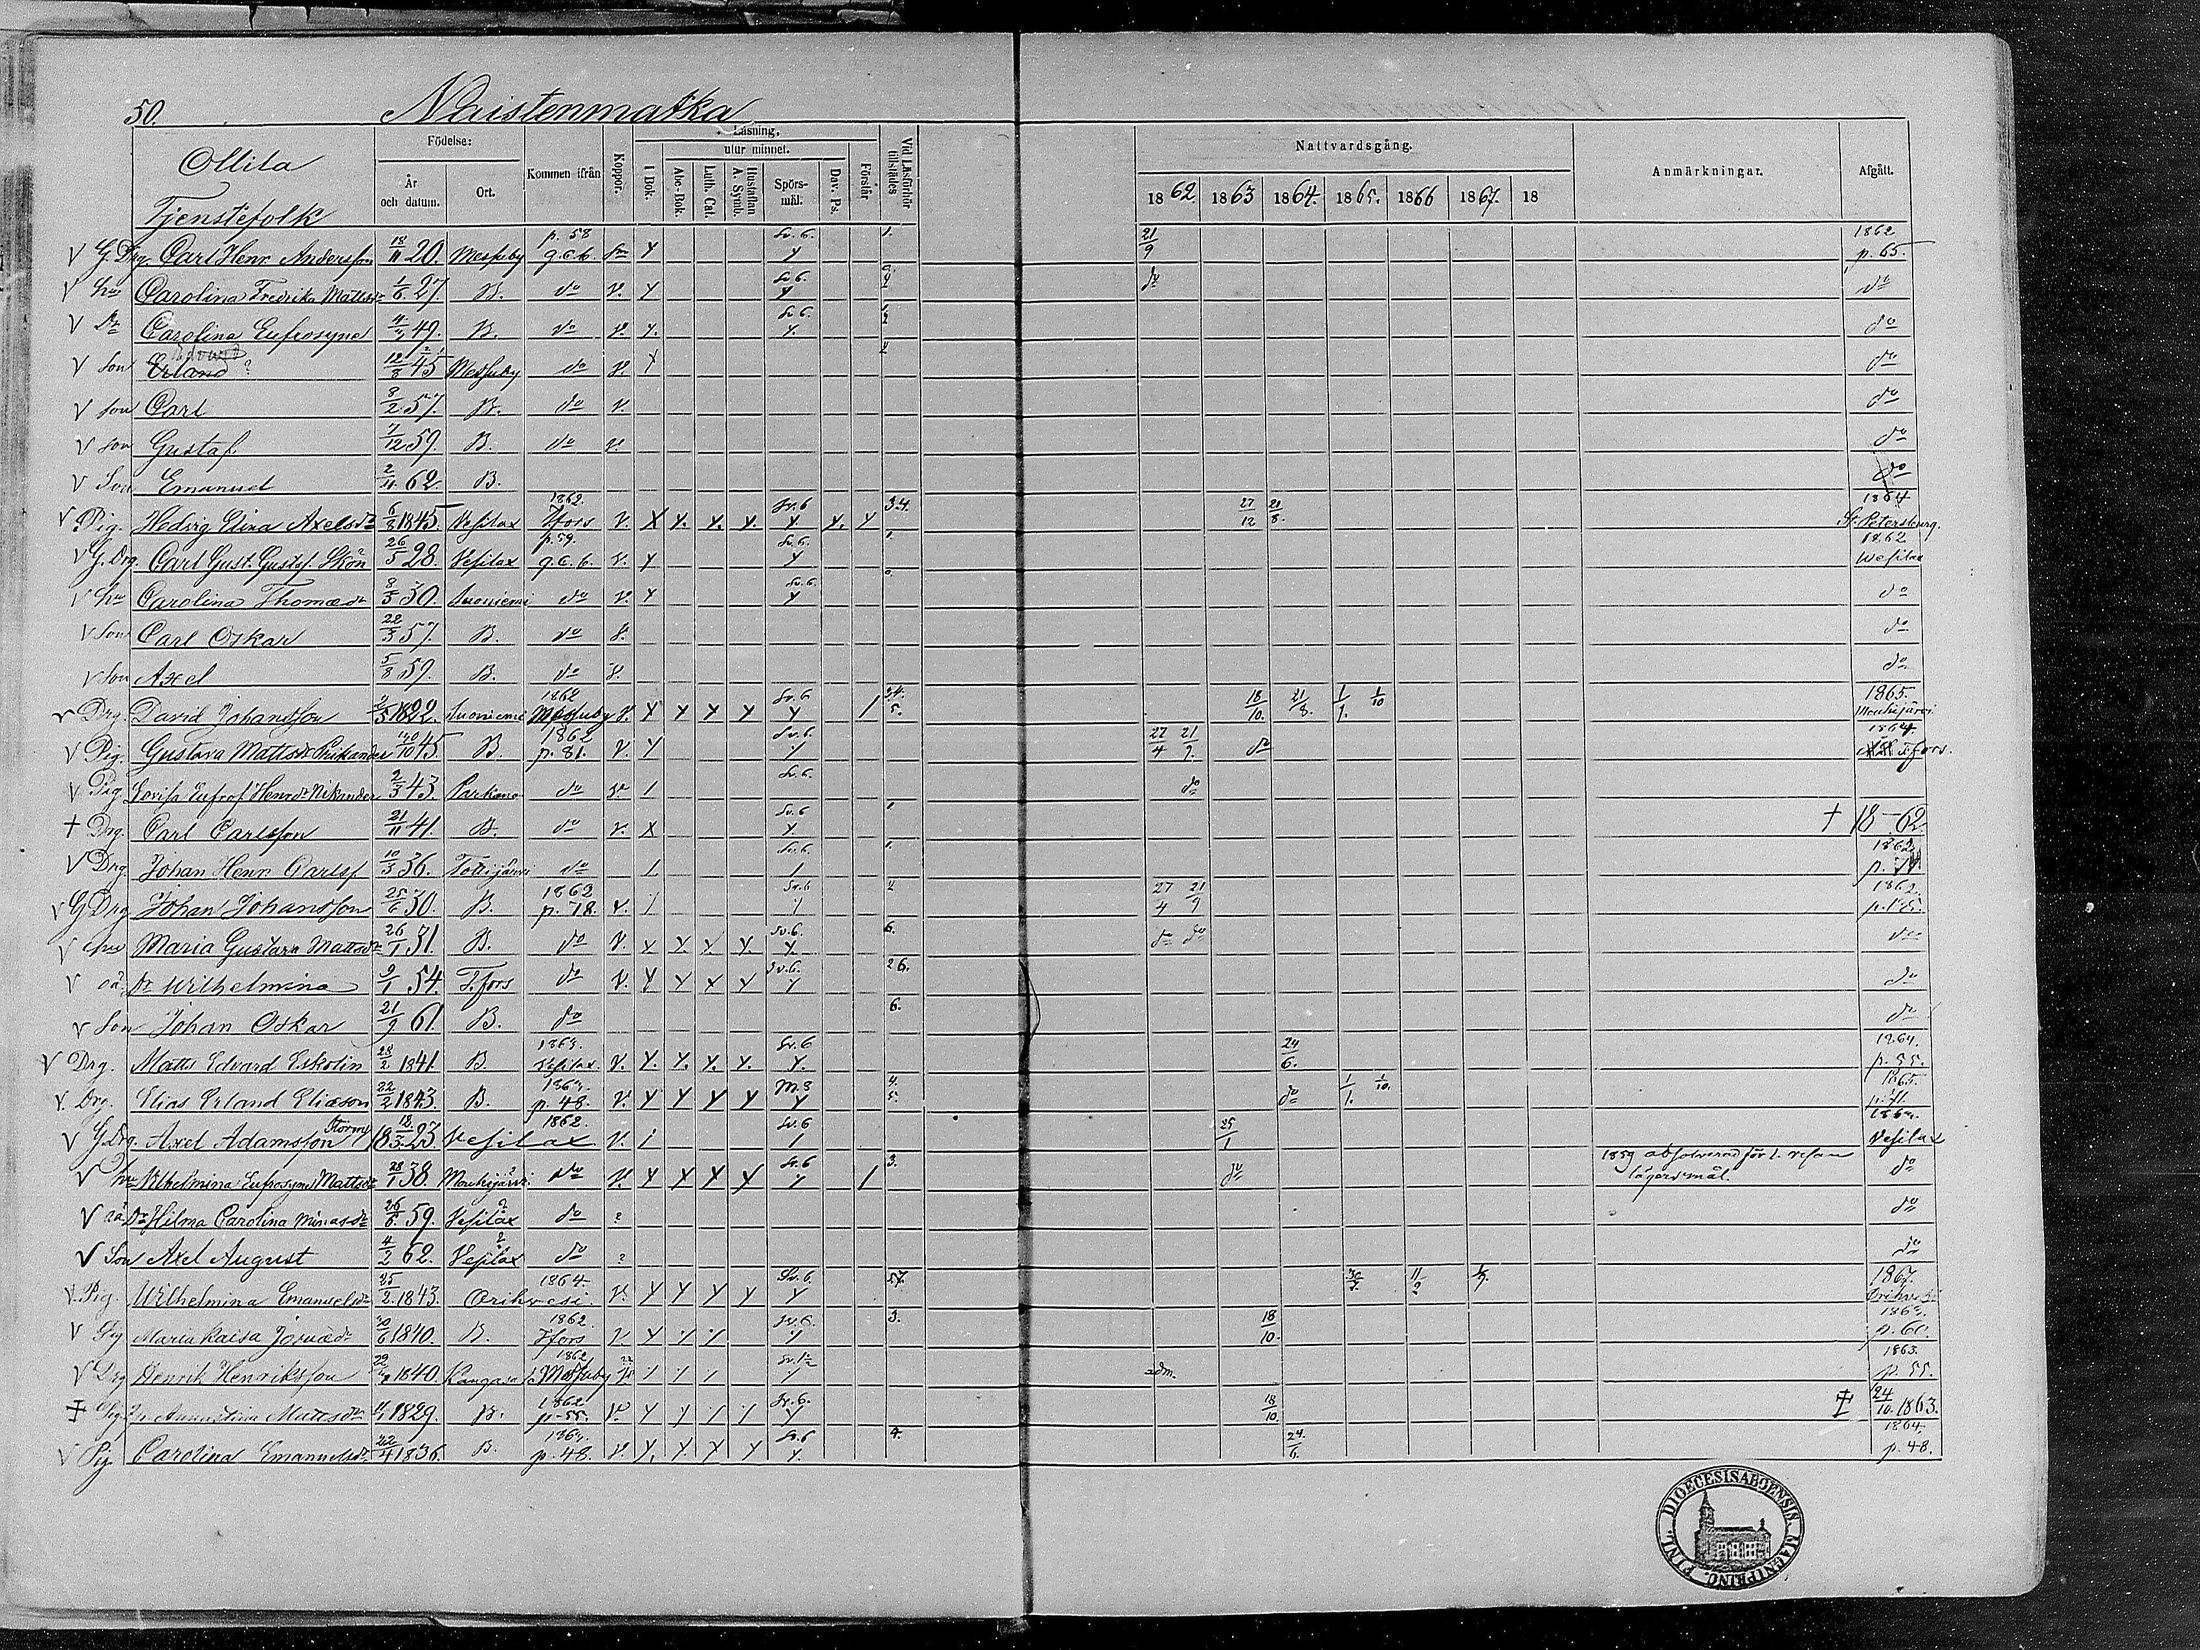 50. Naistenmatka
Ollila
Tjenstefolk
Födelse: År och datum. Ort. Kommen ifrån Koppor. Läsning, utur minnet. I Bok. Abc-Bok. Luth. Cat. Hustaflan A. Symb. Spörsmål. Dav. Ps. Förstår Vid Läsförhör tillstädes Nattvardsgång. 1862 1863 1864. 1865. 1866 1867. 18 Anmärkningar. Afgått.
V G. Drg. Carl Henr Andersson 18/11 20. Messuby p. 58 g.c.b. Y Sv. 6. Y 1. 21/9 1862 p. 65.
V hu Carolina Fredrika Mattsdr 1/6 27. B. do V. Y Sv. 6. Y do do
V Dr Carolina Eufrosyne 49. B. do V. Y. Sv. 6. Y. do
V Son Erland Edvard ? 12/8 45 Messuby do V. Y do
V Son Carl 8/2 57. B. do V. do
V Son Gustaf 7/12 59. B. do V. do
V Son Emanuel 2/11 62. B. do
V Pig. Hedvig Elina Axelsdr 6/8 1845 Vesilax 1862. Tfors V. X Y. Y. Y. Sv. 6 Y. Y. Y 3.4. 27/12 21/8. 1864 St. Petersburg.
V G. Drg. Carl Gust. Gustafs. Skön 26/5 28. Vesilax p. 59. g.c.b. V. Y Sv. 6. Y 1. 1862 Wesilax
V hu Carolina Thomædr 8/3 30. Suoniemi do V. Y Sv. 6. Y do
V Son Carl Oskar 22/3 57. B. do V. do
V Son Axel 5/8 59. B. do V. do
V Drg. David Johansson 1822. Suoniemi 1862 Messuby V. Y Y Y Y Sv. 6 Y / 3.4. 5. 18/10. 21/8. 1/1. 1/10 1865. Mouhijärvi
V Pig. Gustava Mattsdr 45. B 1862 p. 81. V. Y Sv. 6 / 27/4 21/9. do 1864 Tfors.
V Pig Lovisa Eufros. Henrdr Nikander 2/3 43. Parkano do V. / Sv. 6. do
† Drg. Carl Carlsson 21/11 41. B. do V. X Sv. 6 Y. 1 † 18-62.
V Drg. Johan Henr Carlsf 10/3 36. Tottijärvi do / Sv. 6. / 1. 1862
V G Drg Johan Johansson 25/6 30. B. 1862 p. 78. V. / Sv. 6 / 27/4 21/9 1862.
V hu Maria Gustava Mattsdr 26/1 31. B. do V. Y. Y. Y. Y. Sv. 6. Y. 6. do do do
V oä. Dr Wilhelmina 9/1 54. T.fors do V. Y Y Y Y Sv. 6. Y 26. do
V Son Johan Oskar 21/9 61. B. do 6. do
V Drg. Matts Edvard Eskolin 28/2 1841. B 1863. Vesilax V. Y. Y. Y. Y. Sv. 6 Y. 24/6. 1864. p. 55.
V. Drg. Elias Erland Eliæson 22/2 1843. B. p. 48. V. Y Y Y Y M. 3 Y 4. 5. do 1/1. 1/10. 1865.
V G. Drg. Axel Adamsson Storm 18/3 1823 Vesilax 1862. V. / Sv. 6 / 25/1 Vesilax
V hu Wilhelmina Eufrosyne Mattsdr 28/1 38. Mouhijärvi ? do V. Y Y Y Y Sv. 6 Y / 3. do 1859 absolverad för 1. resan lägersmål. do
V oä Dr Hilma Carolina Minasdr 26/6. 59. Vesilax ? do ? do
V Son Axel August 4/2 62. Vesilax ? do ? do
V. Pig. Wilhelmina Emanuelsdr 25/2. 1843. Orihvesi. 1864. V. Y Y Y Y Sv. 6. Y 57. 11/2 1867.
V Pig Maria Kaisa 30/6 1840. B. 1862. Tfors V Y / / Sv. 6. / 3. 18/10. p. 60.
V Drg Henrik Henriksson 1840. Kangasala 1862 Messuby / / / / adm. 1863. p. 55.
‡ Pig. Annastina Mattsdr 1829. B. 1862 p. 55. V. Y Y / / Sv. 6. Y 18/10 ‡ 24/10. 1863.
V Pig Carolina Emanuelsdr 22/4 1836. B. p. 48. V. Y. Y. Y Y Sv. 6 Y. 4. 24./6. 1864. p. 48.
FINL. DIOECESIS ABOENSIS. MAGNI PRINC.